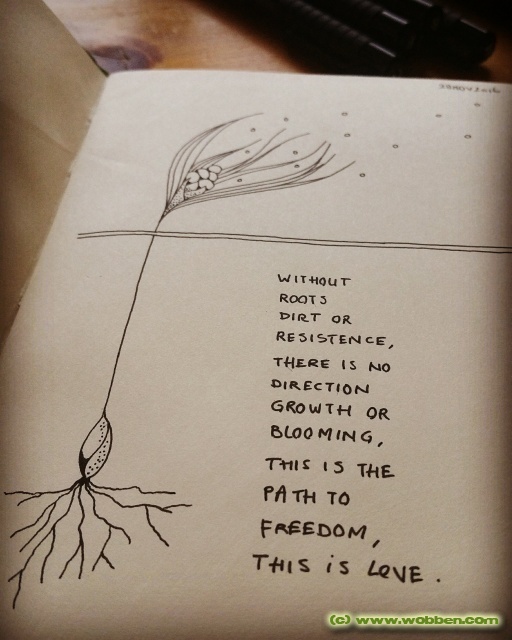 WITHOUT
ROOTS
DIRT OR
RESISTENCE,
THERE IS NO
DIRECTION
GROWTH OR
BLOOMING,
THIS IS THE
PATH TO
FREEDOM,
THIS IS LOVE.
(c) www.wobben.com